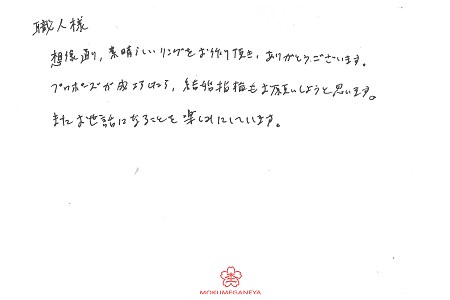 職人様
想像通り、素晴らしいリングをお作り頂き、ありがとうございます。
プロポーズが成功したら、結婚指輪もお願いしようと思います。
またお世話になることを楽しみにしています。
MOKUMEGANEYA